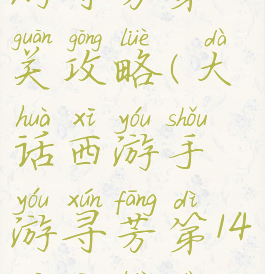 guān gōng lüè dà
关攻略(大
huà xī yóu shǒu
话西游手
yóu xún fāng dì
游寻芳第14